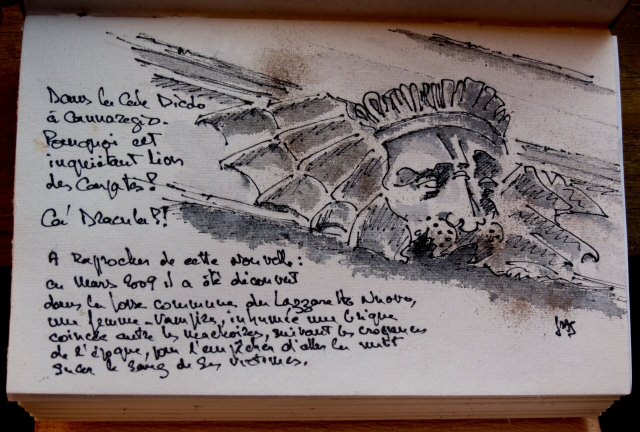 Dans la Calle Diedo
à Cannaregio.
Pourquoi cet
inquiétant Lion
des Carpates?
Ca' Dracula?!
A Rapprocher de cette nouvelle:
en mars 2009 il a été découvert
dans la fosse commune du Lazzaretto Nuovo,
une femme-vampire, inhumée une brique
coincée entre les mâchoires, suivant les croyances
de l'époque, pour l'empêcher d'aller la nuit
sucer le sang de ses victimes.